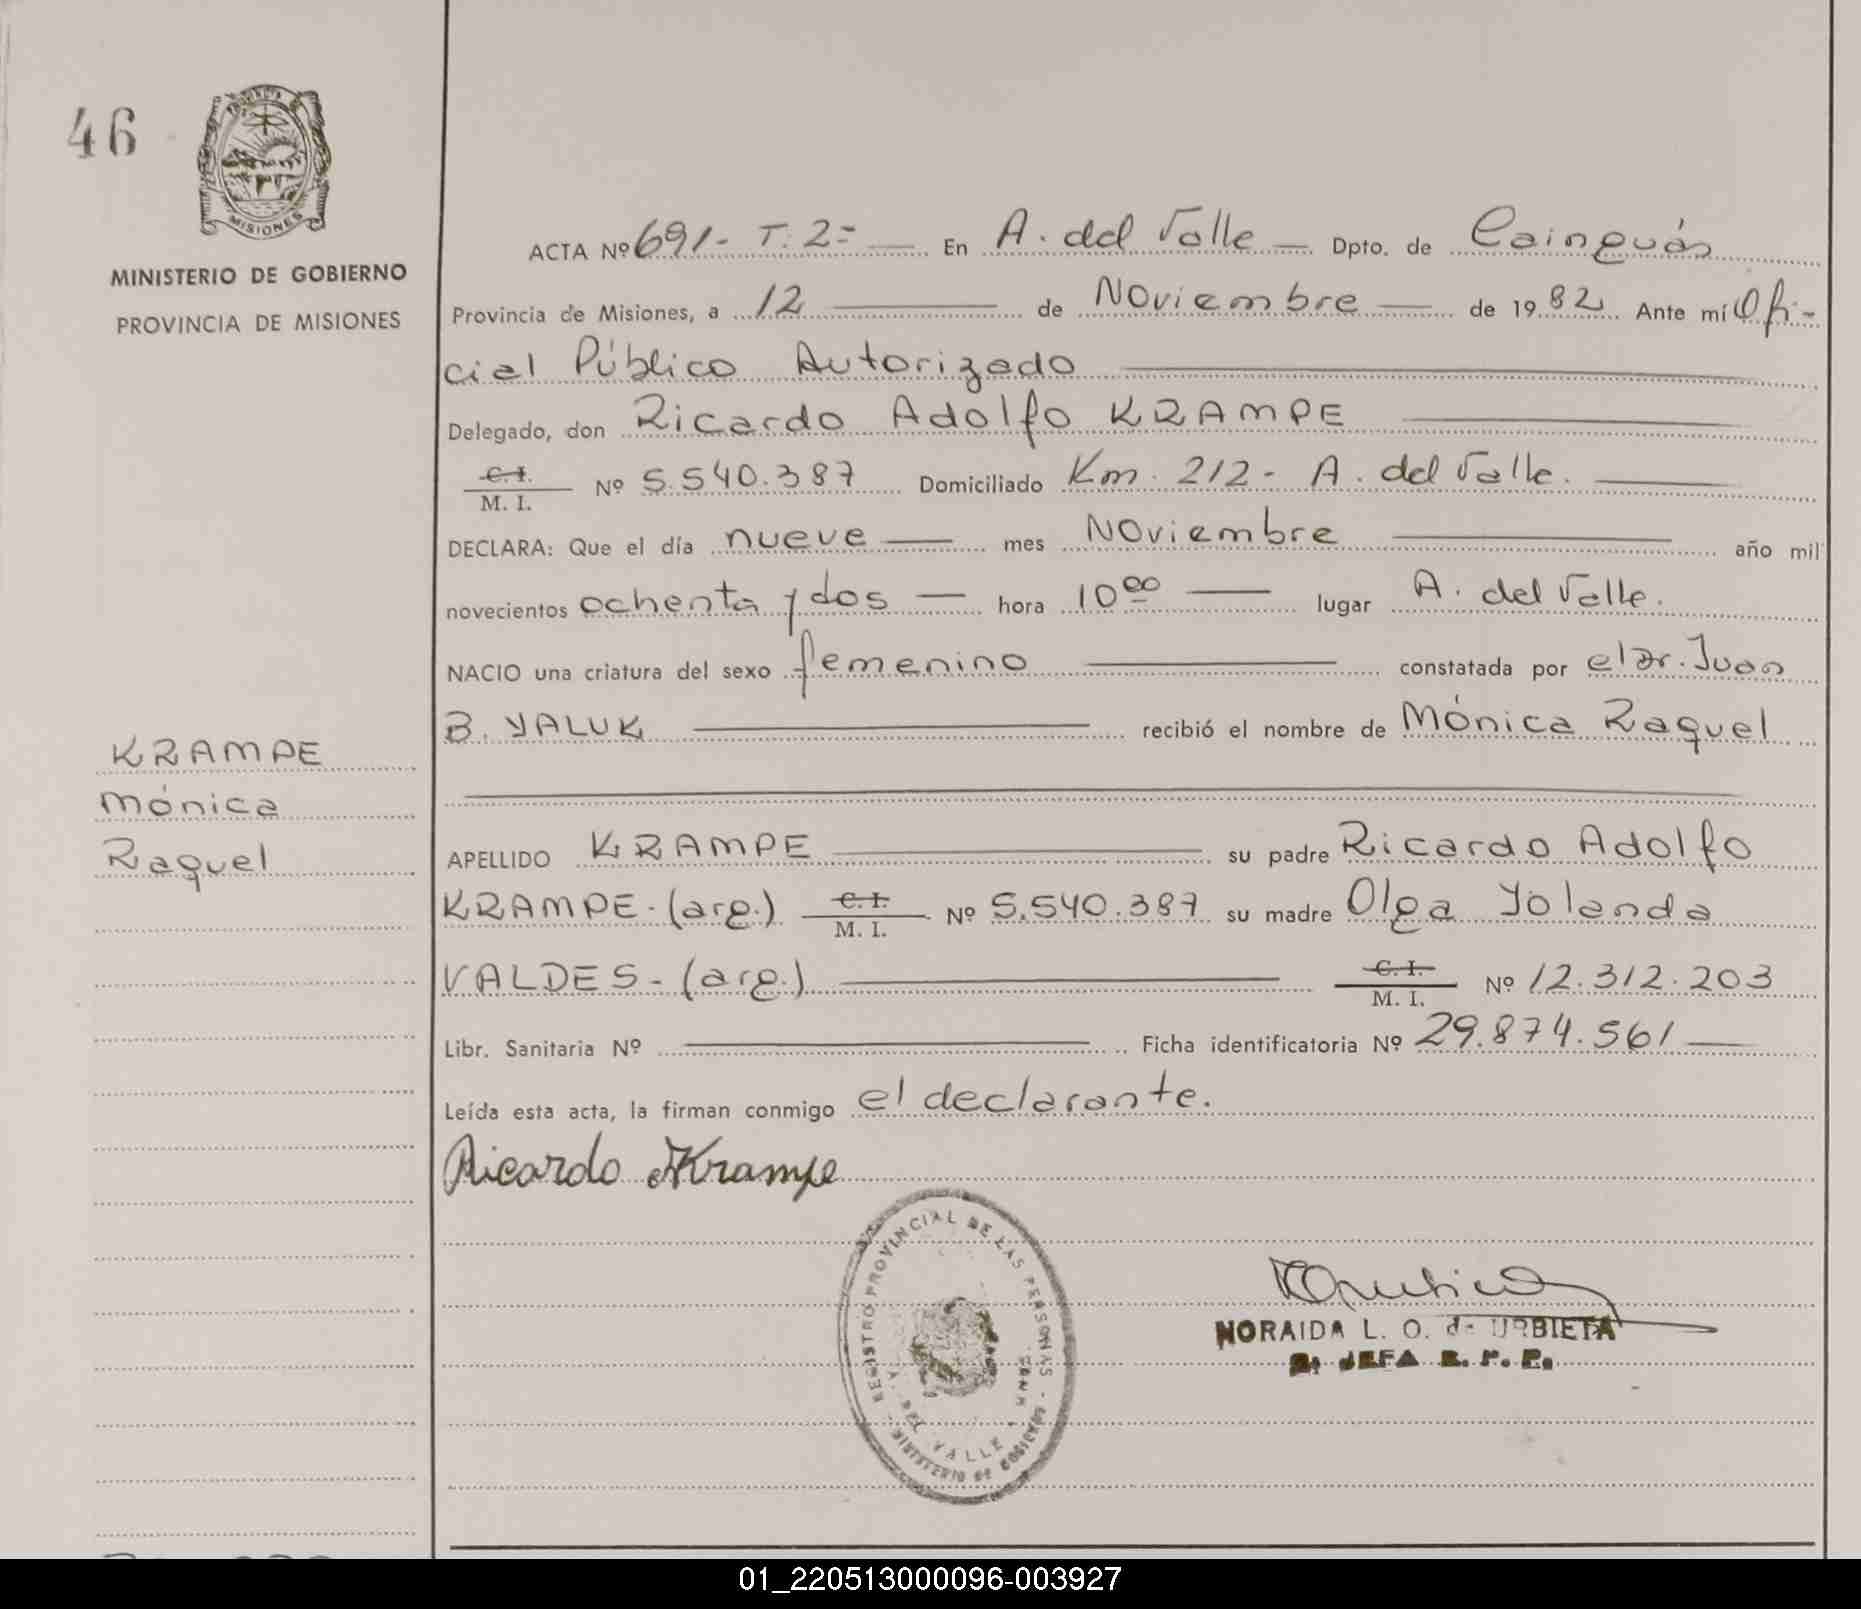 46
PROVINCIA DE
MISIONES
MINISTERIO DE GOBIERNO
PROVINCIA DE MISIONES
KRAMPE
Mónica
Raquel
ACTA Nº 691- T. 2- En A. del Valle Dpto. de Cainguás
Provincia de Misiones, a 12 de Noviembre de 1982 Ante mí Ofi-
cial Público Autorizado
Delegado, don Ricardo Adolfo KRAMPE
C. I.
M. I. Nº 5.540.387 Domiciliado Km. 212- A. del Valle.
DECLARA: Que el día nueve mes Noviembre año mil
novecientos ochenta y dos hora 10 00 lugar A. del Valle.
NACIO una criatura del sexo femenino constatada por el Dr. Juan
B. YALUK recibió el nombre de Mónica Raquel
APELLIDO KRAMPE su padre Ricardo Adolfo
KRAMPE-(arg.) C. I.
M. I. Nº 5.540.387 su madre Olga Yolanda
VALDES-(arg.) C. I.
M. I. Nº 12.312.203
Libr. Sanitaria Nº Ficha identificatoria Nº 29.874.561
Leída esta acta, la firman conmigo el declarante.
Ricardo A Krampe
REGISTRO PROVINCIAL DE LAS PERSONAS - MINISTERIO DE GOBIERNO
A. DEL VALLE
NORAIDA L. O. de URBIETA
JEFA R. P. P.
01_220513000096-003927